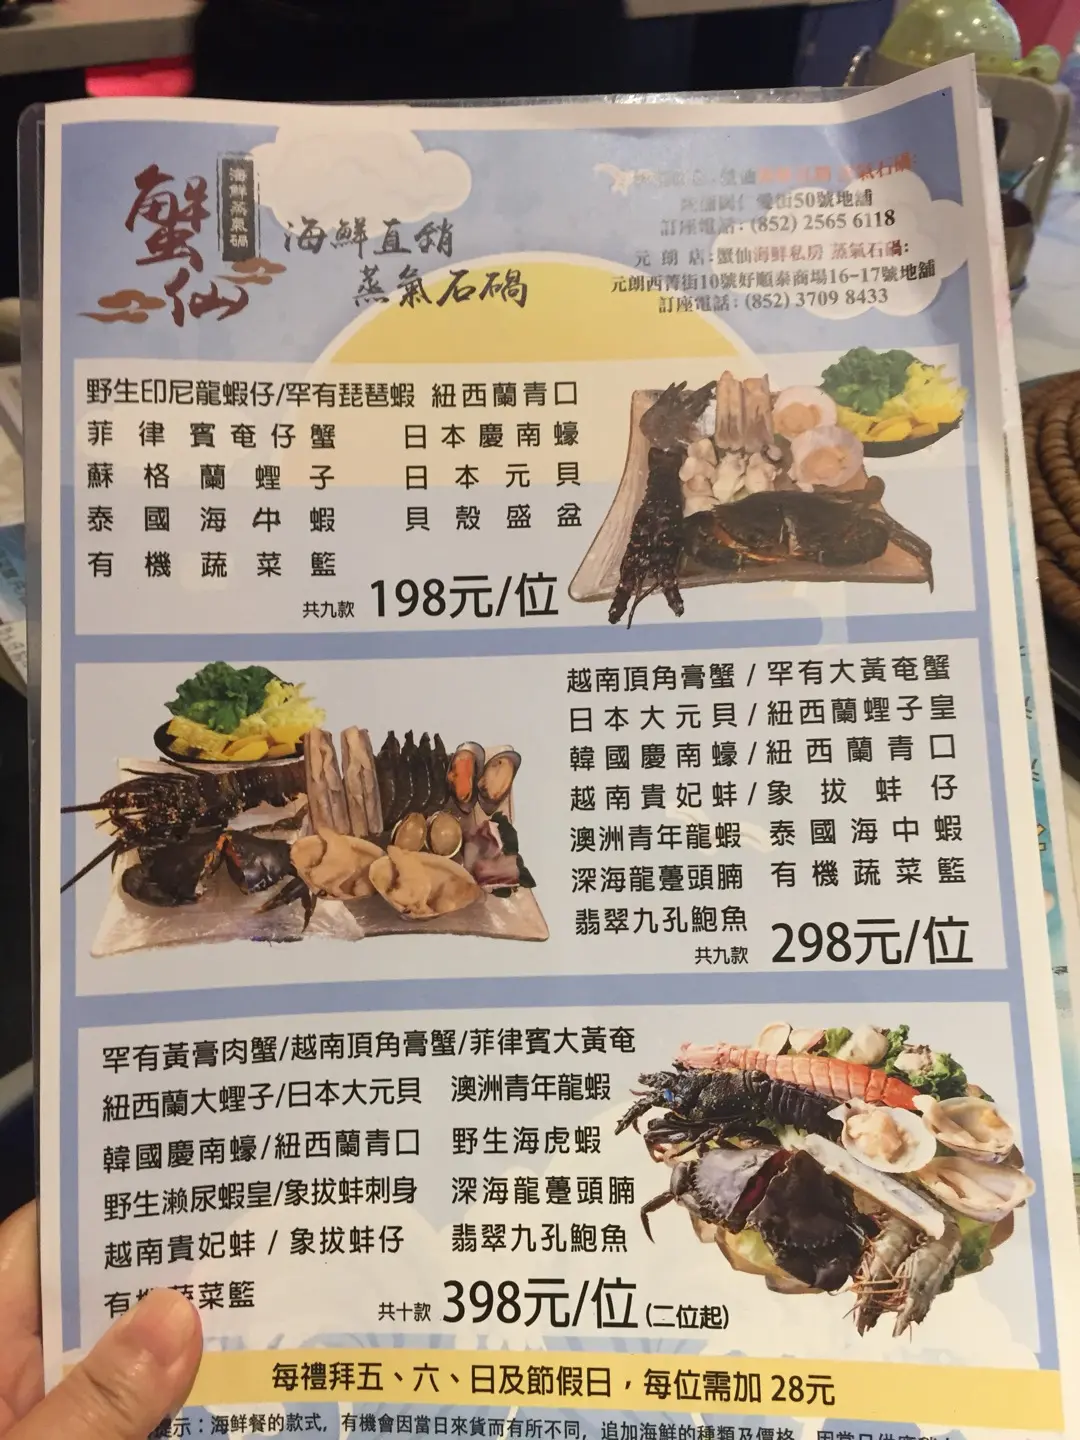 蟹仙
海鮮蒸氣鍋
海鮮直銷
蒸氣石鍋
街50號地舖
訂座電話：(852) 2565 6118
元朗店：蟹仙海鮮私房 蒸氣石鍋：
元朗西菁街10號好順泰商場16-17號地舖
訂座電話：(852) 3709 8433
野生印尼龍蝦仔/罕有琵琶蝦 紐西蘭青口
菲律賓奄仔蟹 日本慶南蠔
蘇格蘭蟶子 日本元貝
泰國海中蝦 貝殼盛盆
有機蔬菜籃
共九款 198元/位
越南頂角膏蟹/罕有大黃奄蟹
日本大元貝/紐西蘭蟶子皇
韓國慶南蠔/紐西蘭青口
越南貴妃蚌/象拔蚌仔
澳洲青年龍蝦 泰國海中蝦
深海龍躉頭腩 有機蔬菜籃
翡翠九孔鮑魚
共九款 298元/位
罕有黃膏肉蟹/越南頂角膏蟹/菲律賓大黃奄
紐西蘭大蟶子/日本大元貝 澳洲青年龍蝦
韓國慶南蠔/紐西蘭青口 野生海虎蝦
野生瀨尿蝦皇/象拔蚌刺身 深海龍躉頭腩
越南貴妃蚌/象拔蚌仔 翡翠九孔鮑魚
有機蔬菜籃
共十款 398元/位(二位起)
每禮拜五、六、日及節假日，每位需加 28元
提示：海鮮餐的款式，有機會因當日來貨而有所不同，追加海鮮的種類及價格，